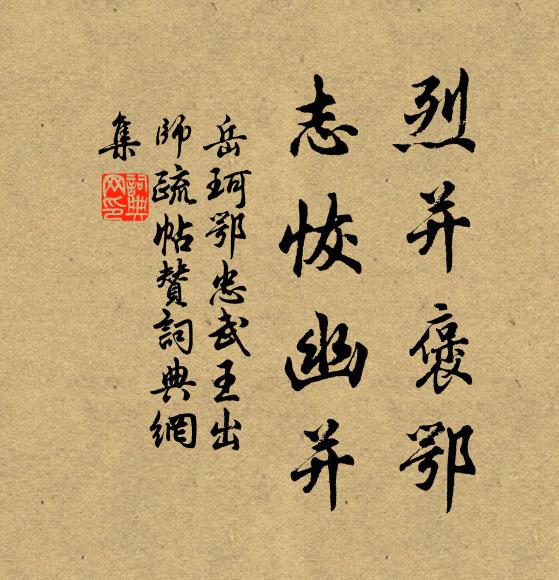 烈并褒鄂
志恢幽并
岳珂鄂忠武王出
師疏帖贊詞典網
集
詞典網印